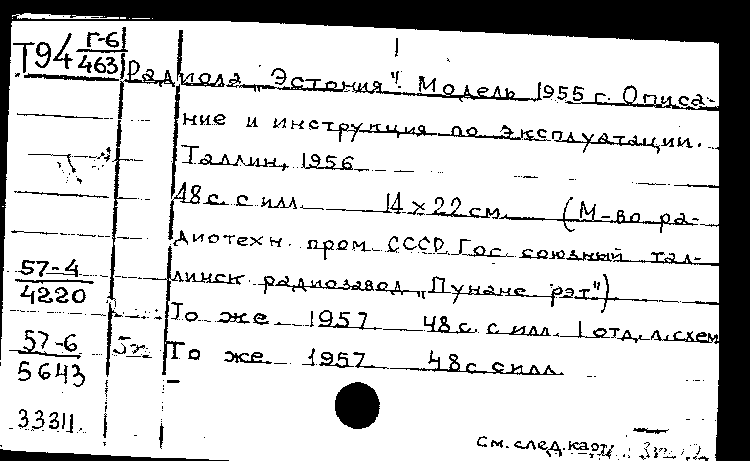 Т94 Г-6/463
Радиола „Эстония". Модель 1955 г. Описа-
ние и инструкция по эксплуатации.
Таллин, 1956
48 с. с илл. 14 × 22 см. (М-во ра-
диотехн. пром СССР. Гос союзный тал-
линск радиозавод „Пунане рэт")
57-4/4220
То же. 1957. 48 с. с илл. 1 отд. л. схем
57-6/5643
То же. 1957. 48 с с илл.
33311.
См. след. карт.